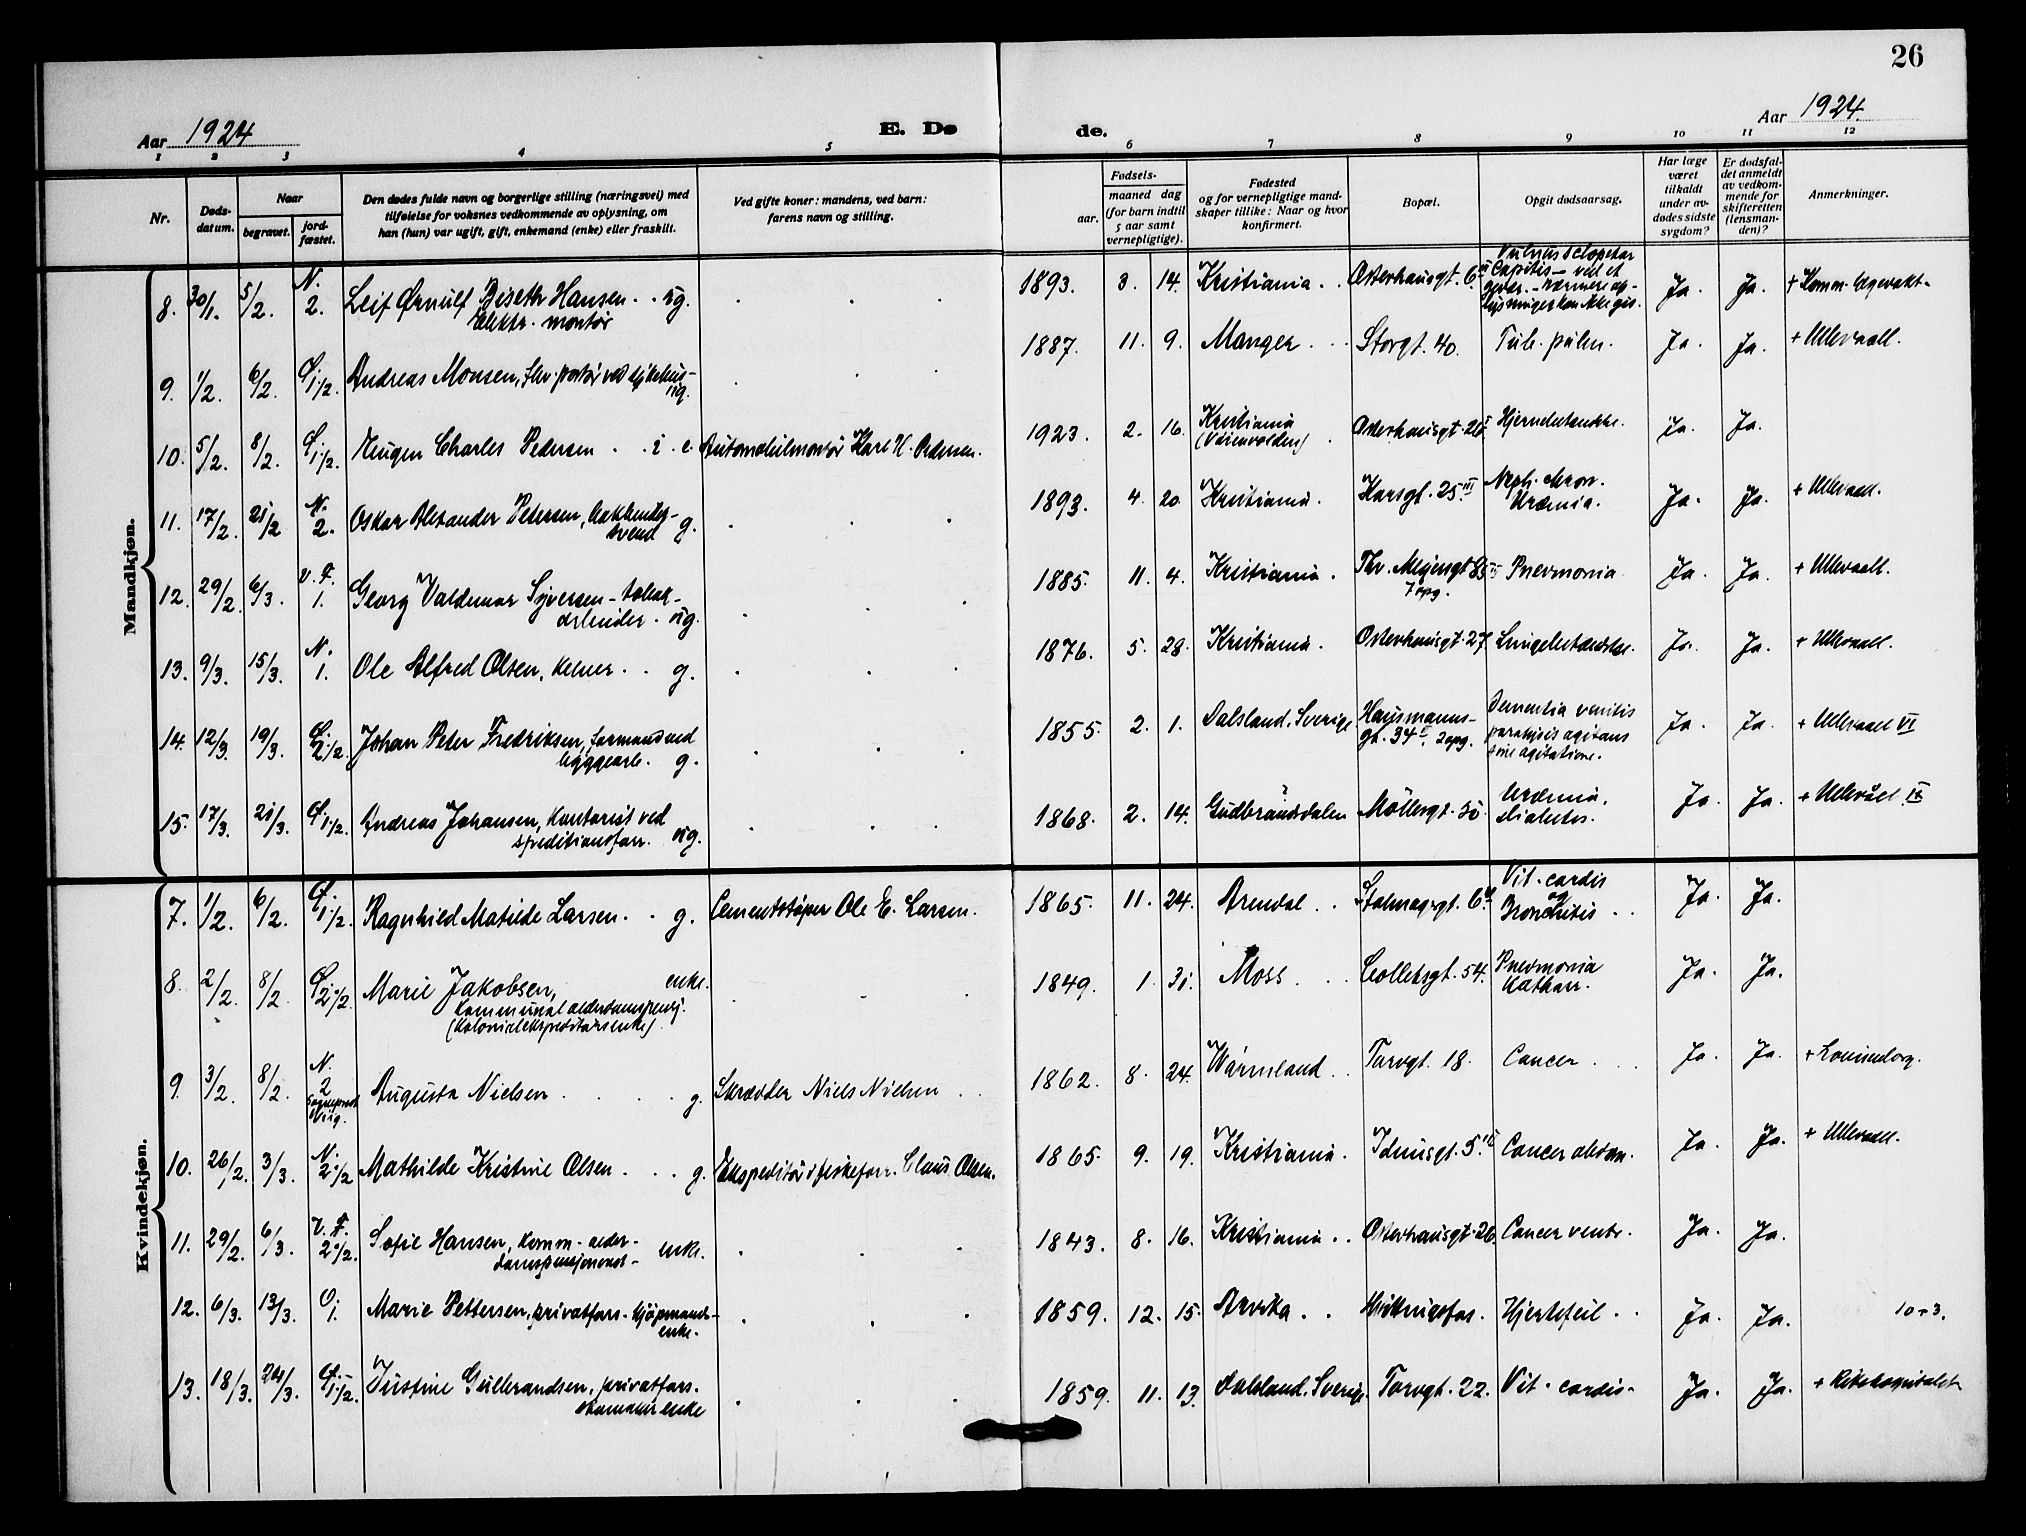 26
Aar 1924 E. Dø de. Aar 1924.
1 2 3 4 5 6 7 8 9 10 11 12
Nr.
Døds-
datum.
Naar
begravet.
jord-
fæstet.
Den dødes fulde navn og borgerlige stilling (næringsvei) med
tilføielse for voksnes vedkommende av oplysning, om
han (hun) var ugift, gift, enkemand (enke) eller fraskilt.
Ved gifte koner: mandens, ved barn:
farens navn og stilling.
Fødsels-
aar.
maaned dag
(for barn indtil
5 aar samt
vernepligtige).
Fødested
og for vernepligtige mand-
skaper tillike: Naar og hvor
konfirmert.
Bopæl.
Opgit dødsaarsag.
Har læge
været
tilkaldt
under av-
dødes sidste
sygdom?
Er dødsfal-
det anmeldt
av vedkom-
mende for
skifteretten
(lensman-
den)?
Anmerkninger.
Mandkjøn.
8. 30/1. 5/2. N. 2. Leif Ørnulf Biseth Hansen . . ug. 1893. 3. 14. Kristiania . . Osterhausgt. 6 III Capitis - ved et Ja. Ja. + Komm. lægevakt.
Elektr. montør
9. 1/2. 6/2. Ø. 1 1/2. Andreas Monsen, ug. 1887. 11. 9. Manger . . . Storgt. 40. Tub. pulm. Ja. Ja. + Ullevaall.
10. 5/2. 8/2. Ø. 1 1/2. Eugen Charles Pedersen . . i. e. Automobilmontør Karl H. Pedersen. 1923. 2. 16. Kristiania Osterhausgt. 26 Hjernebetændelse. Ja. Ja.
11. 17/2. 21/2 N. 2. Oskar Alexander Petersen, g. 1893. 4. 20. Kristiania. Korsgt. 25 III Neph. chron. Ja. Ja. + Ullevaall.
svend Uræmia.
12. 29/2. 6/3. V. F. 1. Georg Valdemar Syversen - tobak- 1885. 11. 4. Kristiania. Thv. Meyersgt 85 Pnevmonia Ja. Ja. + Ullevaall.
arbeider. ug. 7 opg.
13. 9/3. 15/3. N. 1. Ole Alfred Olsen, Kelner. . g. 1876. 5. 28. Kristiania. Osterhausgt. 27 Lungebetændelse. Ja. Ja. + Ullevaall.
14. 12/3. 19/3. Ø. 2 1/2. Johan Peter Fredriksen, formand ved 1855. 2. 1. Dalsland. Sverige Hausmanns- Dementia senilis Ja. Ja. + Ullevaall VI
byggearb. g. gt. 34 II, 2 opg. paralysis agitans
sine agitatione.
15. 17/3. 21/3. Ø. 1 1/2. Andreas Johansen, Kontorist ved 1868. 2. 14. Gudbrandsdalen Möllergt. 30 Uræmia, Ja. Ja. + Ullevål IX
speditionsforr. ug. diabetes.
Kvindekjøn.
7. 1/2. 6/2. Ø. 1 1/2. Ragnhild Matilde Larsen . . g. Cementstøper Ole E. Larsen. 1865. 11. 24. Arendal . . 6 Vit. cordis Ja. Ja.
og
Bronchitis . .
8. 2/2. 8/2. Ø. 2 1/2. Marie Jakobsen, enke. 1849. 1. 31. Moss . . Colletsgt. 54. Pnevmonia Ja. Ja.
kommunal alderdomspensj. Katharr.
(Kolonialekspeditørs enke)
9. 3/2. 8/2. N. 2 Augusta Nielsen . . . . g. Skrædder Niels Nielsen . . 1862. 8. 24. Wärmland . . Torvgt. 18. Cancer . . . Ja. Ja. + Lovisenborg.
10. 26/2. 3/3. N. 2 1/2 Mathilde Kristine Olsen . . . g. Ekspeditør i fiskeforr. Claus Olsen. 1865. 9. 19. Kristiania. Idunsgt. 5 Cancer abdom. Ja. Ja. + Ullevaall.
11. 29/2. 6/3. V. F. 2 1/2. Sofie Hansen, komm. alder- enke. 1843. 8. 16. Kristiania . . Osterhausgt. 26. Cancer ventr. Ja. Ja.
domspensjonist -
12. 6/3. 13/3. O. 1. Marie Pettersen, privatfors. kjöpmands- 1859. 12. 15. Arvika . . Hjertefeil . . Ja. Ja. 10 + 3.
enke.
13. 18/3. 24/3. Ø. 1 1/2. Justine Gulbrandsen, privatfors. 1859. 11. 13. Dalsland. Sverige Torvgt. 22. Vit. cordis. Ja. Ja. + Rikshospitalet
enke